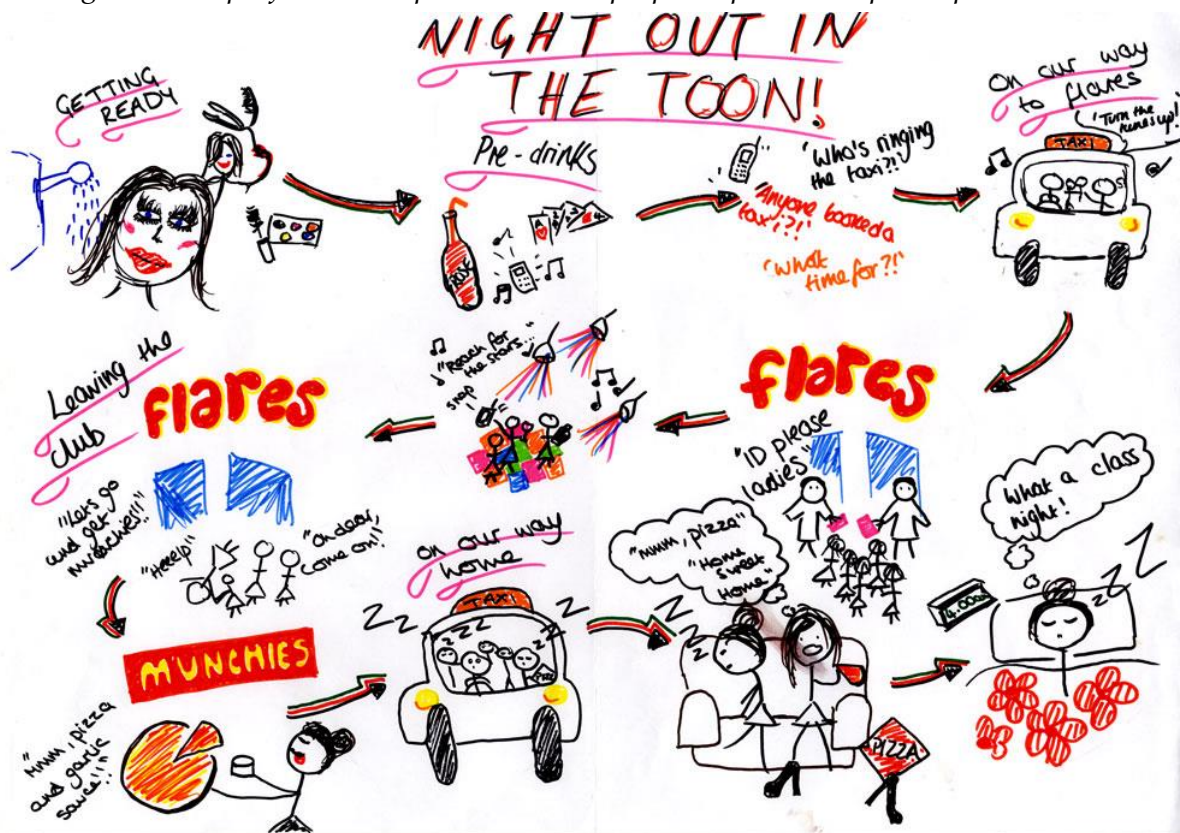 NIGHT OUT IN
THE TOON!
GETTING
READY
Pre-drinks
ROSE
'Who's ringing
the taxi?!'
"Anyone booked a
taxi?!"
'What
time for?!'
On our way
to flares
'Turn the
tunes up!'
TAXI
flares
"ID please
ladies"
"Reach for
the stars..."
snap
Leaving the
club
flares
"Let's go
and get
munchies!!"
"Heeelp"
"Oh dear,
come on!"
MUNCHIES
"Mmm, pizza
and garlic
sauce!!"
on our way
home
TAXI
Z Z Z Z Z Z
"mmm, pizza"
"Home
sweet
Home
z z z
PIZZA
What a class
night!
4.00am
z z Z Z